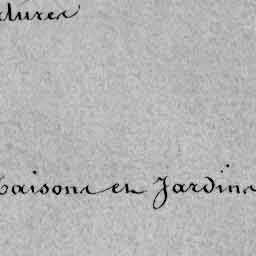 tures
Maisons et Jardins